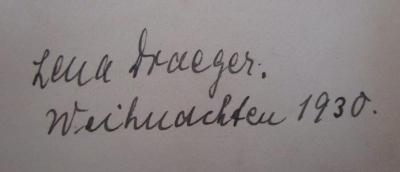 Lena Draeger.
Weihnachten 1930.